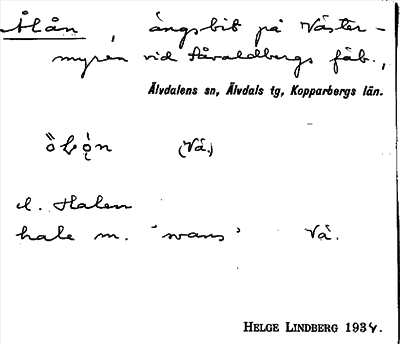 Ålån, ängsbit på Väster-
myren vid Råvaldbergs fäb.,
Älvdalens sn, Älvdals tg, Kopparbergs län.
(Vå.)
el. Halen
hale m. 'svans' Vå.
HELGE LINDBERG 1934.